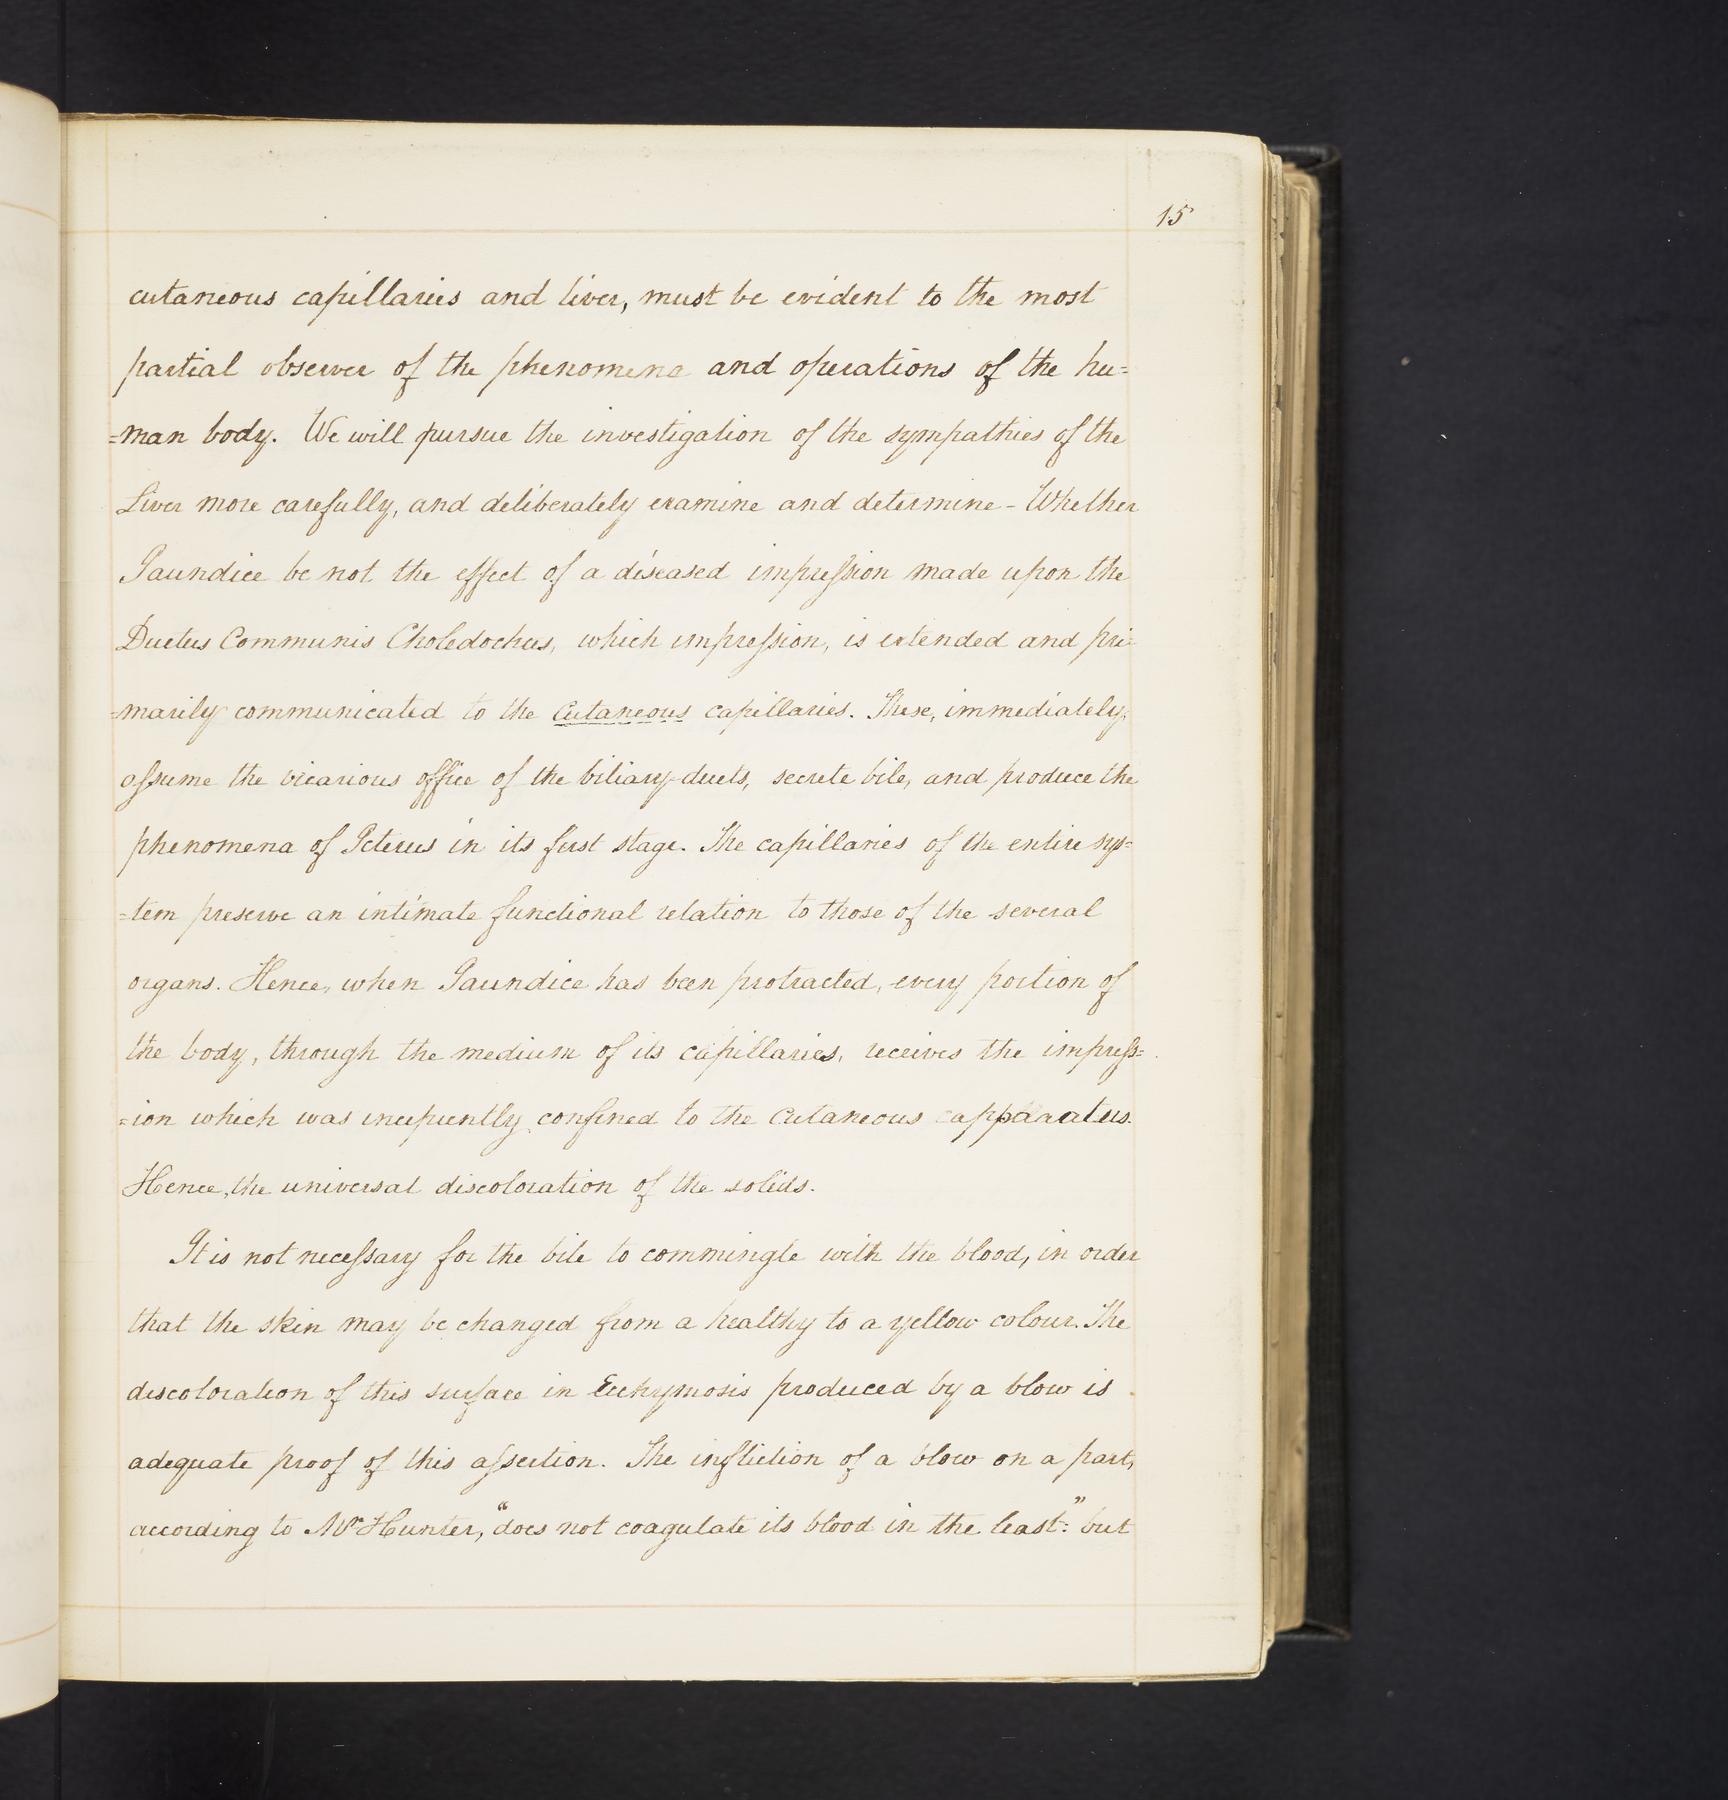 15
cutaneous capillaries and liver, must be evident to the most
partial observer of the phenomena and operations of the hu=
=man body. We will pursue the investigation of the sympathies of the
Liver more carefully, and deliberately examine and determine - Whether
Jaundice be not the effect of a diseased impression made upon the
Ductus Communis Choledochus, which impression, is extended and pri=
=marily communicated to the cutaneous capillaries. These, immediately,
assume the vicarious office of the biliary-ducts, secrete bile, and produce the
phenomena of Icterus in its first stage. The capillaries of the entire sys=
=tem preserve an intimate functional relation to those of the several
organs. Hence, when Jaundice has been protracted, every portion of
the body, through the medium of its capillaries, receives the impress=
=ion which was incipiently confined to the cutaneous apparatus.
Hence, the universal discoloration of the solids.
It is not necessary for the bile to commingle with the blood, in order
that the skin may be changed from a healthy to a yellow colour. The
discoloration of this surface in Ecchymosis produced by a blow is
adequate proof of this assertion. The infliction of a blow on a part,
according to Mr Hunter, "does not coagulate its blood in the least:" but